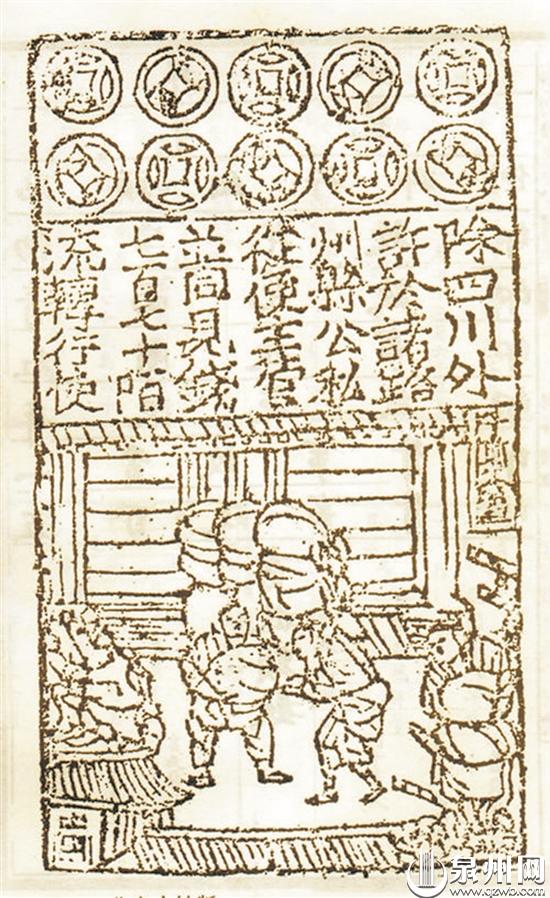 除四川外
許於諸路
州縣公私
從便主管
並同見錢
七百七十陌
流轉行使
泉州网
www.qzwb.com